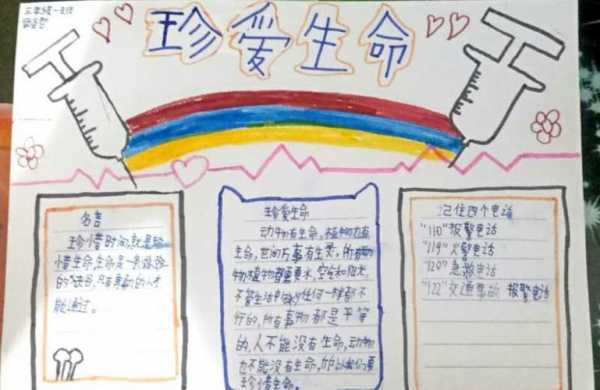 三年级一班
珍爱生命
名言
珍惜时间,就是珍
惜生命,生命是一条
的 ,只有勇敢的人才
能通过。
珍爱生命
动物有生命,植物也有
生命,世间万事有生灵,所有动
物植物都需要水、空气和阳光,
不管生活中缺少任何一样都不
行的,所有事物都是平等
的,人不能没有生命,动物
也不能没有生命,所以我们要
珍惜生命。
记住四个电话
"110"报警电话
"119"火警电话
"120"急救电话
"122"交通事故报警电话